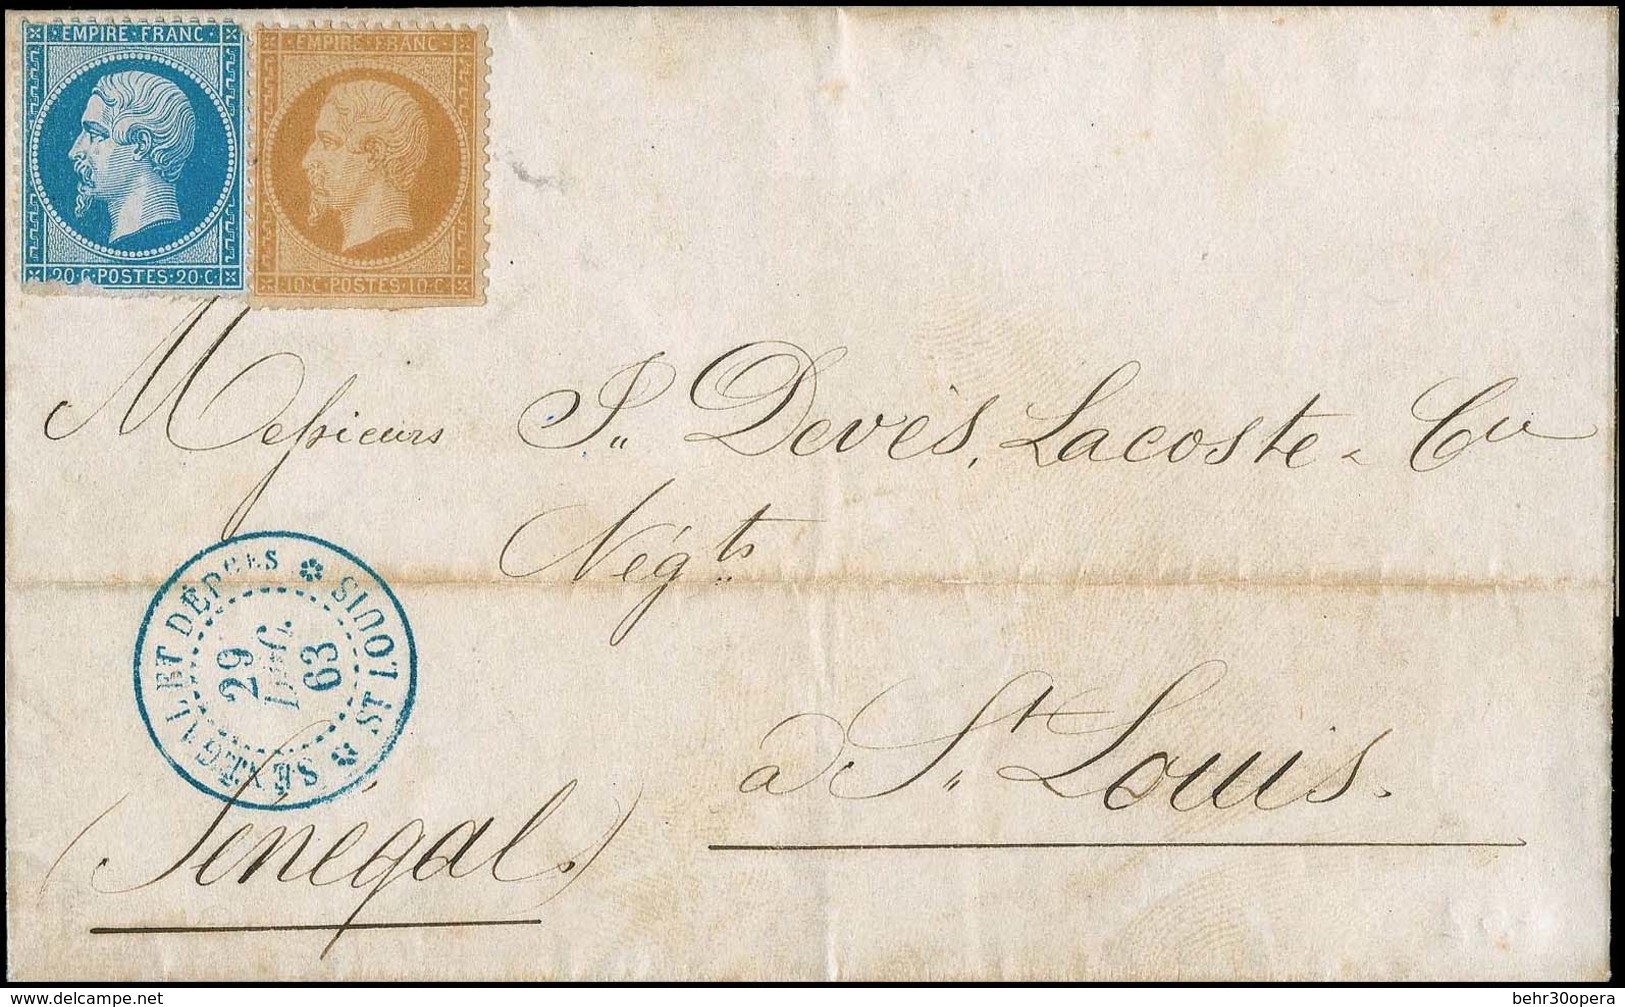 EMPIRE · FRANC
20 · C · POSTES · 20 · C
EMPIRE · FRANC
10 · C · POSTES · 10 · C
Messieurs J. Devès, Lacoste & Cie
Négts
SÉNÉGAL ET DÉPCES
ST LOUIS
29
DÉC.
63
à St. Louis.
(Sénégal)
www.delcampe.net
behr30opera